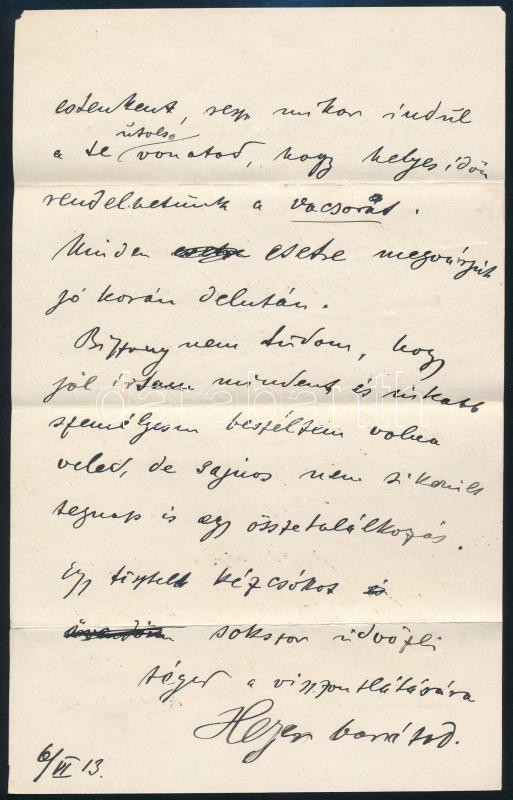 estenként, resp mikor indúl
útolso
a te vonatod, hogy helyes idön
rendelhetünk a vacsorát.
Minden esetre esetre megvárjuk
jó korán delután.
Bizony nem túdom, hogy
jól írtam mindent és inkabb
személyesen beszéltem volna
veled, de sajnos nem sikerült
tegnap is egy összetalálkozás.
Egy tisztelt kézcsókot és
sokszor üdvözli
téged a viszontlátására
barátod.
6/VI 13.
darabanth